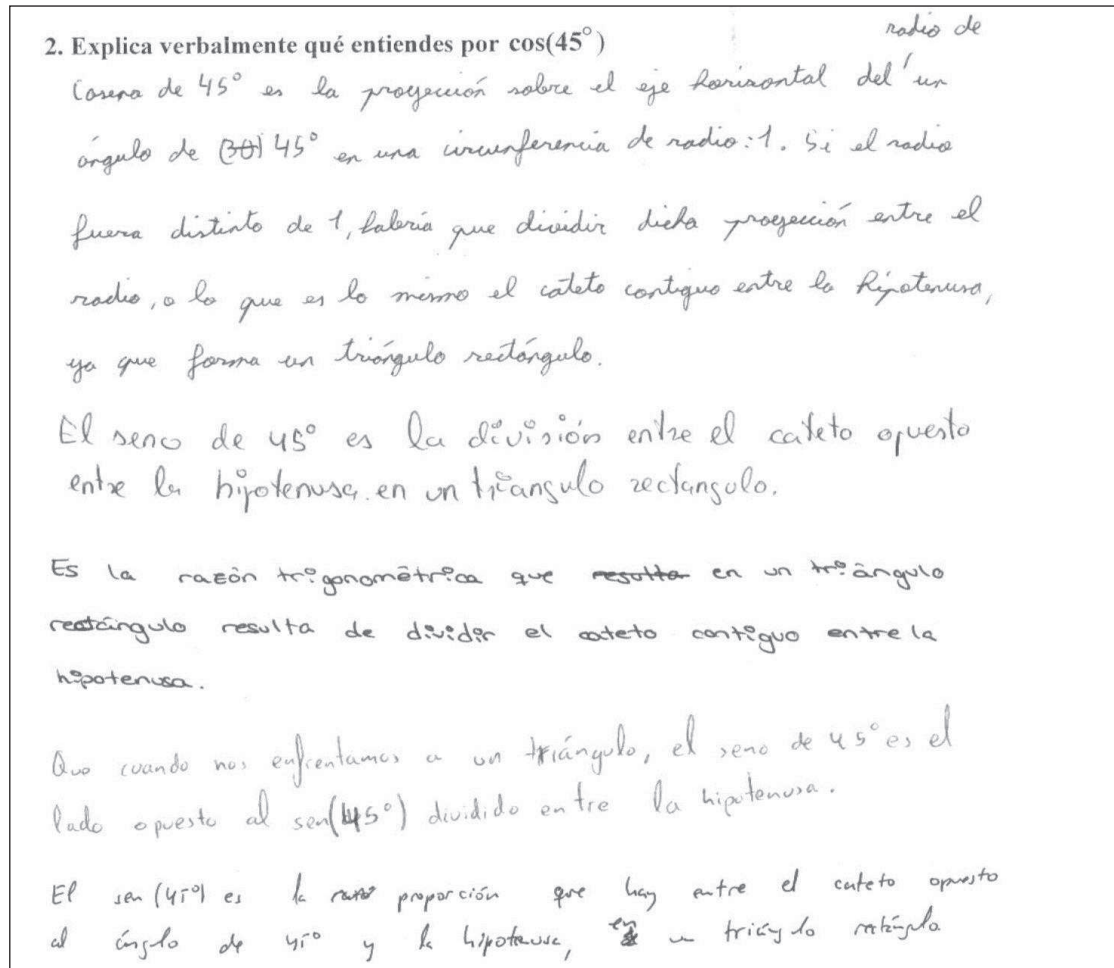 2. Explica verbalmente qué entiendes por cos(45°)
radio de
Coseno de 45° es la proyección sobre el eje horizontal del un
ángulo de (30) 45° en una circunferencia de radio: 1. Si el radio
fuera distinto de 1, habría que dividir dicha proyección entre el
radio, o lo que es lo mismo el cateto contiguo entre la hipotenusa,
ya que forma un triángulo rectángulo.
El seno de 45° es la división entre el cateto opuesto
entre la hipotenusa en un triangulo rectangulo.
Es la razón trigonométrica que resulta en un triángulo
rectángulo resulta de dividir el cateto contiguo entre la
hipotenusa.
Que cuando nos enfrentamos a un triángulo, el seno de 45° es el
lado opuesto al sen(45°) dividido entre la hipotenusa.
El sen (45°) es la proporción que hay entre el cateto opuesto
al ángulo de 45° y la hipotenusa, en un triángulo rectángulo